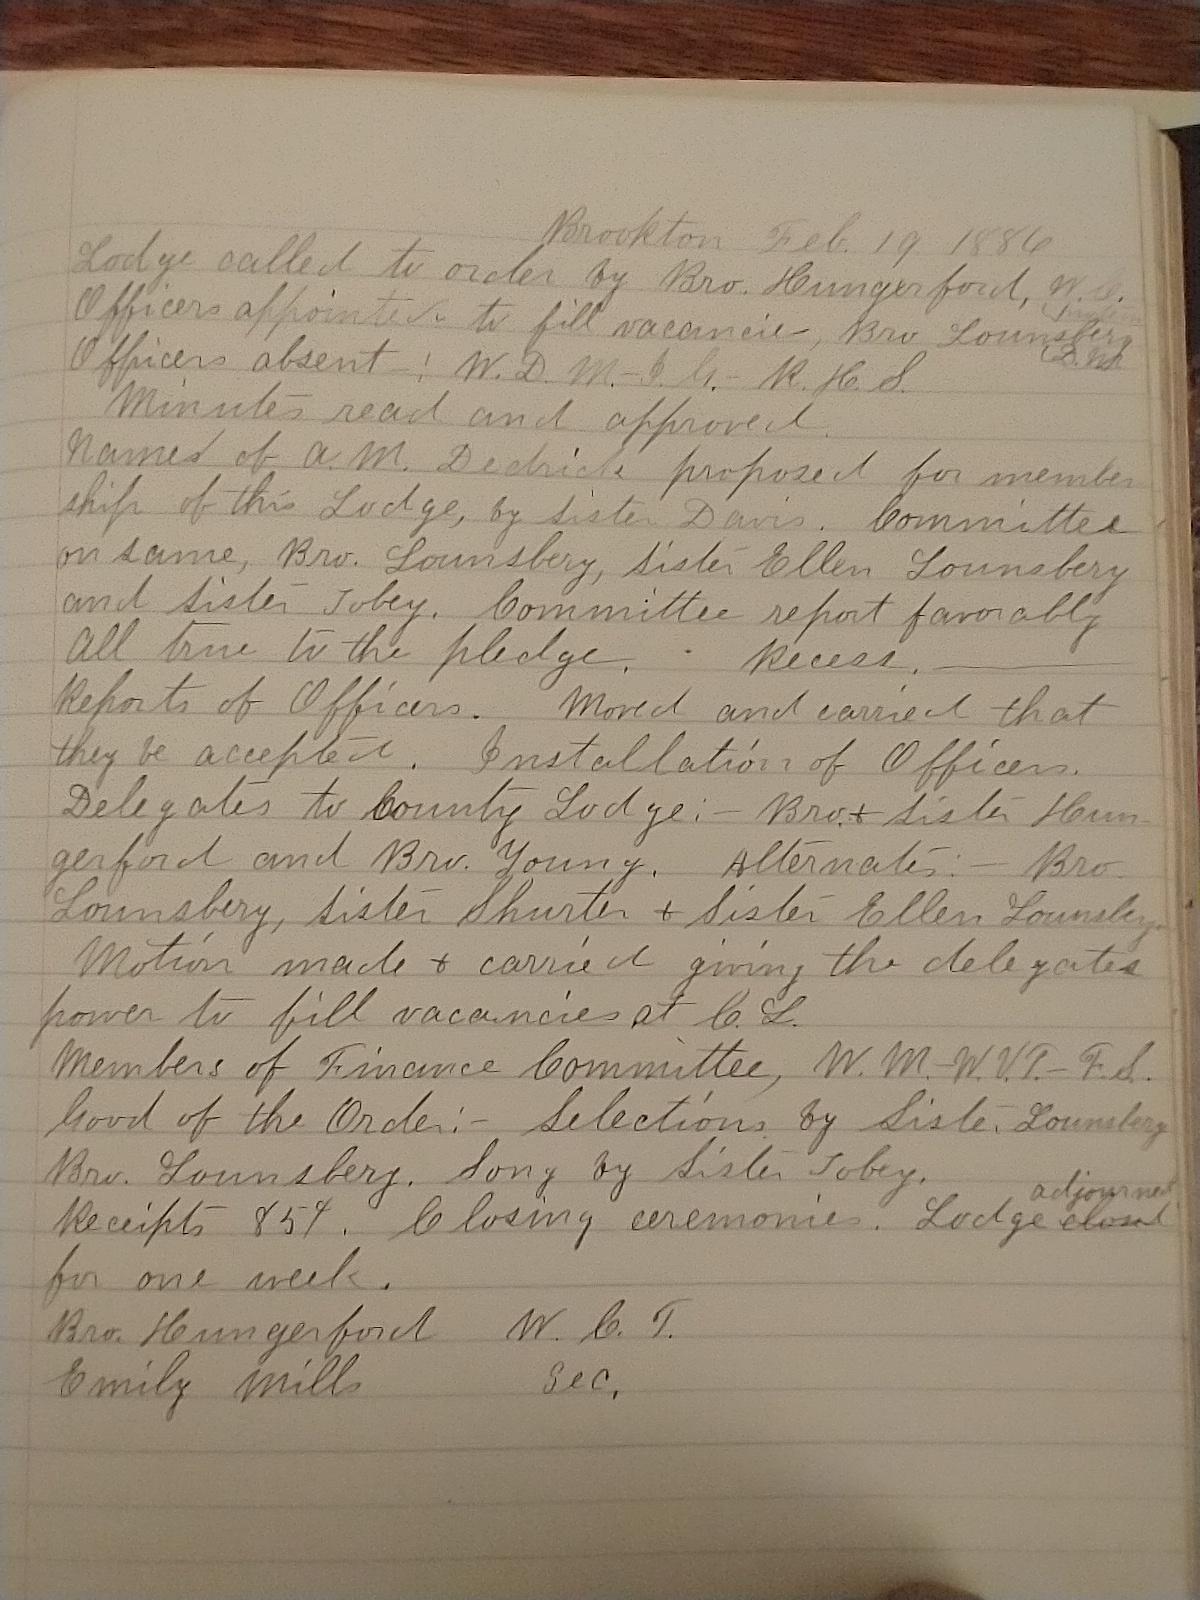 Brookton Feb. 19 1886
Lodge called to order by Bro. Hungerford, W.C.
Officers appointed to fill vacancie, Bro Lounsberg
D.M.
Officers absent: W. D. M.- I. G.- R. H. S.
Minutes read and approved.
Names of A. M. Dedrick proposed for member
ship of this Lodge, by Sister Davis. Committee
on same, Bro. Lounsbery, Sister Ellen Lounsbery
and Sister Tobey. Committee report favorably
All true to the pledge. Recess.
Reports of Officers. Moved and carried that
they be accepted. Installation of Officers.
Delegates to County Lodge:- Bro. + Sister Hun-
gerford and Bro. Young. Alternates:- Bro.
Lounsbery, Sister Shurter + Sister Ellen Lounsbery
Motion made + carried giving the delegates
power to fill vacancies at C. L.
Members of Finance Committee, W. M.-W.V.T.-F.S.
Good of the Order:- Selections by Sister Lounsbery
Bro. Lounsbery. Song by Sister Tobey.
adjourned
Receipts 854. Closing ceremonies. Lodge closed
for one week.
Bro. Hungerford W. C. T.
Emily Mills Sec.